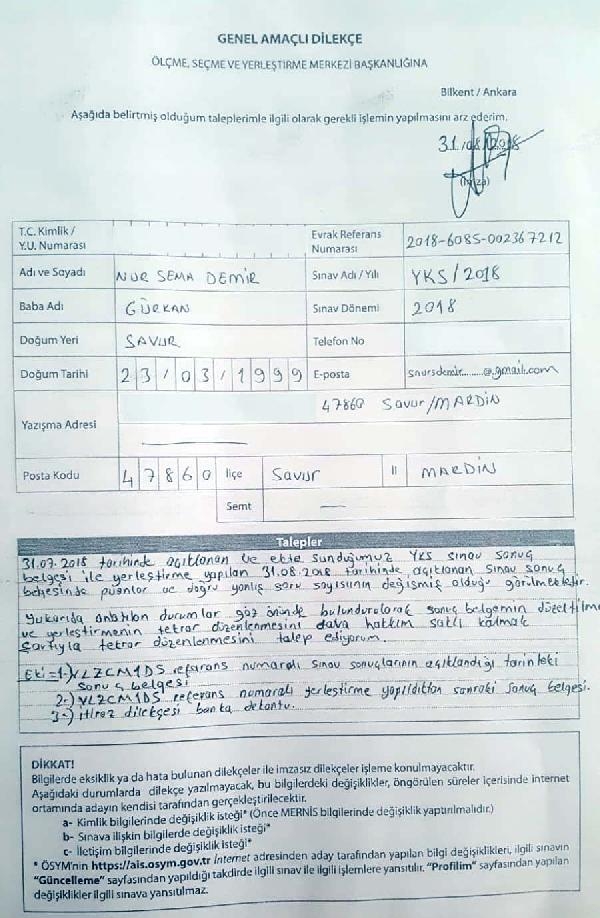 GENEL AMAÇLI DİLEKÇE
ÖLÇME, SEÇME VE YERLEŞTİRME MERKEZİ BAŞKANLIĞINA
Bilkent / Ankara
Aşağıda belirtmiş olduğum taleplerimle ilgili olarak gerekli işlemin yapılmasını arz ederim.
31/08/2018
(İmza)
T.C. Kimlik /
Y.U. Numarası
Evrak Referans
Numarası
2018-6085-002367212
Adı ve Soyadı NUR SEMA DEMİR Sınav Adı / Yılı YKS/2018
Baba Adı GÜRKAN Sınav Dönemi 2018
Doğum Yeri SAVUR Telefon No
Doğum Tarihi 23/03/1999 E-posta snursdemir.........@gmail.com
Yazışma Adresi 47860 Savur/MARDİN
Posta Kodu 47860 İlçe Savur İl MARDİN
Semt —
Talepler
31.07.2018 tarihinde açıklanan ve ekte sunduğumuz YKS sınav sonuç
belgesi ile yerleştirme yapılan 31.08.2018 tarihinde açıklanan sınav sonuç
belgesinde puanlar ve doğru yanlış soru sayısının değişmiş olduğu görülmektedir.
Yukarıda anlatılan durumlar göz önünde bulundurularak sonuç belgemin düzeltilme
ve yerleştirmenin tekrar düzenlenmesini dava hakkım saklı kalmak
şartıyla tekrar düzenlenmesini talep ediyorum.
Eki=1-) YLZCM1DS referans numaralı sınav sonuçlarının açıklandığı tarihteki
sonuç belgesi
2-) YLZCM1DS referans numaralı yerleştirme yapıldıktan sonraki sonuç belgesi.
3-) itiraz dilekçesi banka dekontu.
DİKKAT!
Bilgilerde eksiklik ya da hata bulunan dilekçeler ile imzasız dilekçeler işleme konulmayacaktır.
Aşağıdaki durumlarda dilekçe yazılmayacak, bu bilgilerdeki değişiklikler, öngörülen süreler içerisinde internet
ortamında adayın kendisi tarafından gerçekleştirilecektir.
a- Kimlik bilgilerinde değişiklik isteği* (Önce MERNİS bilgilerinde değişiklik yaptırılmalıdır.)
b- Sınava ilişkin bilgilerde değişiklik isteği*
c- İletişim bilgilerinde değişiklik isteği*
* ÖSYM'nin https://ais.osym.gov.tr İnternet adresinden aday tarafından yapılan bilgi değişiklikleri, ilgili sınavın
"Güncelleme" sayfasından yapıldığı takdirde ilgili sınav ile ilgili işlemlere yansıtılır. "Profilim" sayfasından yapılan
değişiklikler ilgili sınava yansıtılmaz.